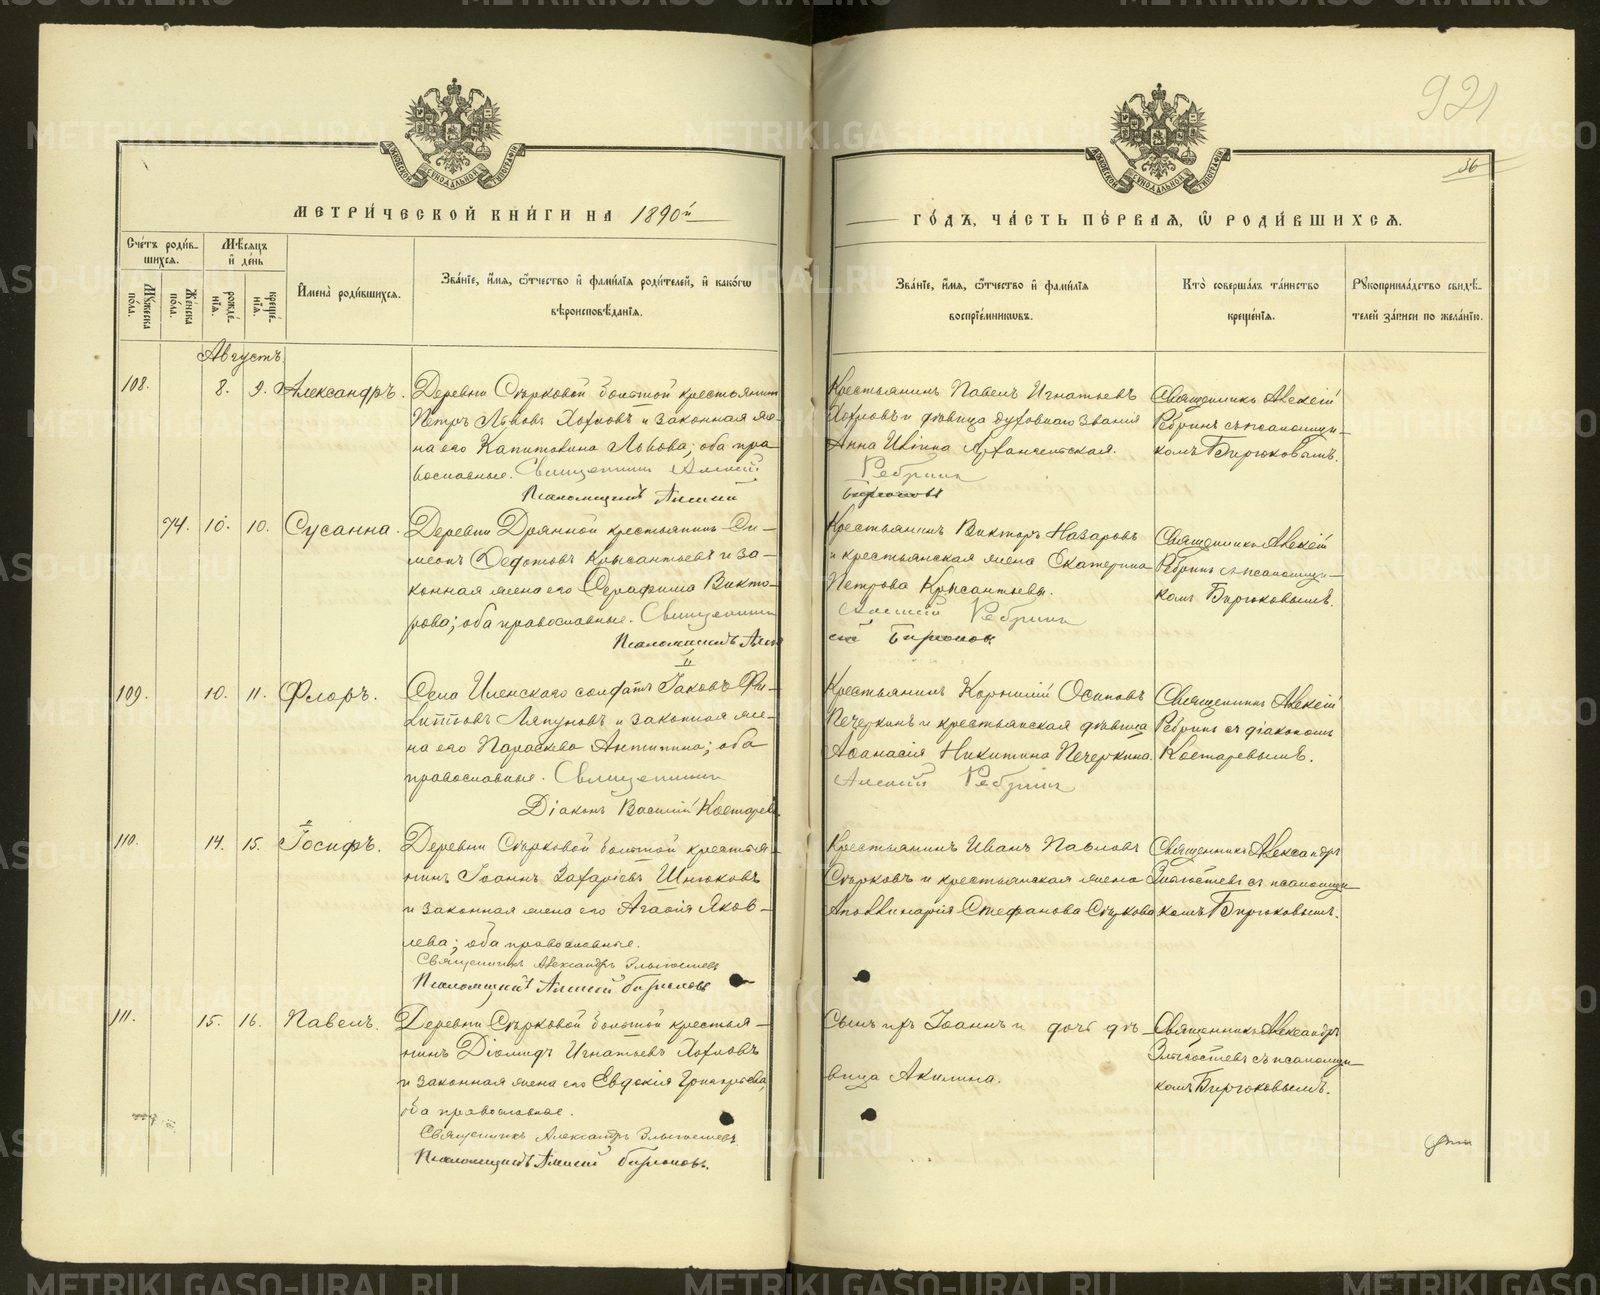 921
56
МОСКОВСКОЙ СѴНОДАЛЬНОЙ ТИПОГРАФІИ
МОСКОВСКОЙ СѴНОДАЛЬНОЙ ТИПОГРАФІИ
МЕТРИ́ЧЕСКОЙ КНИ́ГИ НА 1890й
ГО́ДЪ, ЧА́СТЬ ПЕ́РВАЯ, Ѡ РОДИ́ВШИХСЯ.
Сче́тъ роди́в-
шихся.
Мѣ́сяцъ
и де́нь
Му́жеска по́ла.
Же́нска по́ла.
рожде́нїя.
креще́нїя.
Имена̀ роди́вшихся.
Зва́нїе, и́мя, о́тчество и фами́лїя роди́телей, и како́гѡ
вѣроисповѣ́данїя.
Зва́нїе, и́мя, о́тчество и фами́лїя
воспрїе́мниковъ.
Кто̀ соверша́лъ та́инство
креще́нїя.
Рꙋкоприкла́дство свидѣ́-
телей за́писи по жела́нїю.
Августъ
108. 8. 9. Александръ.
Деревни Сѣрковой большой крестьянинъ
Петръ Львовъ Хохловъ и законная же-
на его Капитолина Львова; оба пра-
вославные. Священникъ Алексій
Псаломщикъ Алексій
Крестьянинъ Павелъ Игнатьевъ
Хохловъ и дѣвица духовнаго званія
Анна
Ребринъ
Бирюковъ
Священникъ Алексій
Ребринъ съ псаломщи-
комъ Бирюковымъ.
74. 10. 10. Сусанна.
Деревни Дрянной крестьянинъ Си-
меонъ Крысантьевъ и за-
конная жена его Серафима Викто-
рова; оба православные. Священникъ
Псаломщикъ
Крестьянинъ Викторъ Назаровъ
и крестьянская жена Екатерина
Петрова Крысантьевы.
Алексій Ребринъ
Бирюковъ
Священникъ Алексій
Ребринъ съ псаломщи-
комъ Бирюковымъ.
109. 10. 11. Флоръ.
Села Иленскаго солдатъ Іаковъ Фи-
липповъ Ляпуновъ и законная же-
на его Параскева Антипина; оба
православные. Священникъ
Діаконъ Василій Костаревъ
Крестьянинъ Корнилій Осиповъ
Печеркинъ и крестьянская дѣвица
Аѳанасія Никитина Печеркина.
Алексій Ребринъ
Священникъ Алексій
Ребринъ съ діакономъ
Костаревымъ.
110. 14. 15. Іосифъ.
Деревни Сѣрковой большой крестья-
нинъ Іоаннъ Захаріевъ Шнюковъ
и законная жена его Агаѳія Яков-
лева; оба православные.
Священникъ Александръ Златостевъ
Псаломщикъ Алексій Бирюковъ
Крестьянинъ Иванъ Павловъ
Сѣрковъ и крестьянская жена
Аполлинарія Стефанова Сѣркова
Священникъ Александръ
съ псаломщи-
комъ Бирюковымъ.
111. 15. 16. Павелъ.
Деревни Сѣрковой большой крестья-
нинъ Діомидъ Игнатьевъ Хохловъ
и законная жена его Евдокія Григорьева,
оба православные.
Священникъ Александръ
Псаломщикъ Алексій Бирюковъ.
Сынъ ихъ Іоаннъ и дочь дѣ-
вица Акилина.
Священникъ Александръ
съ псаломщи-
комъ Бирюковымъ.
METRIKI.GASO-URAL.RU